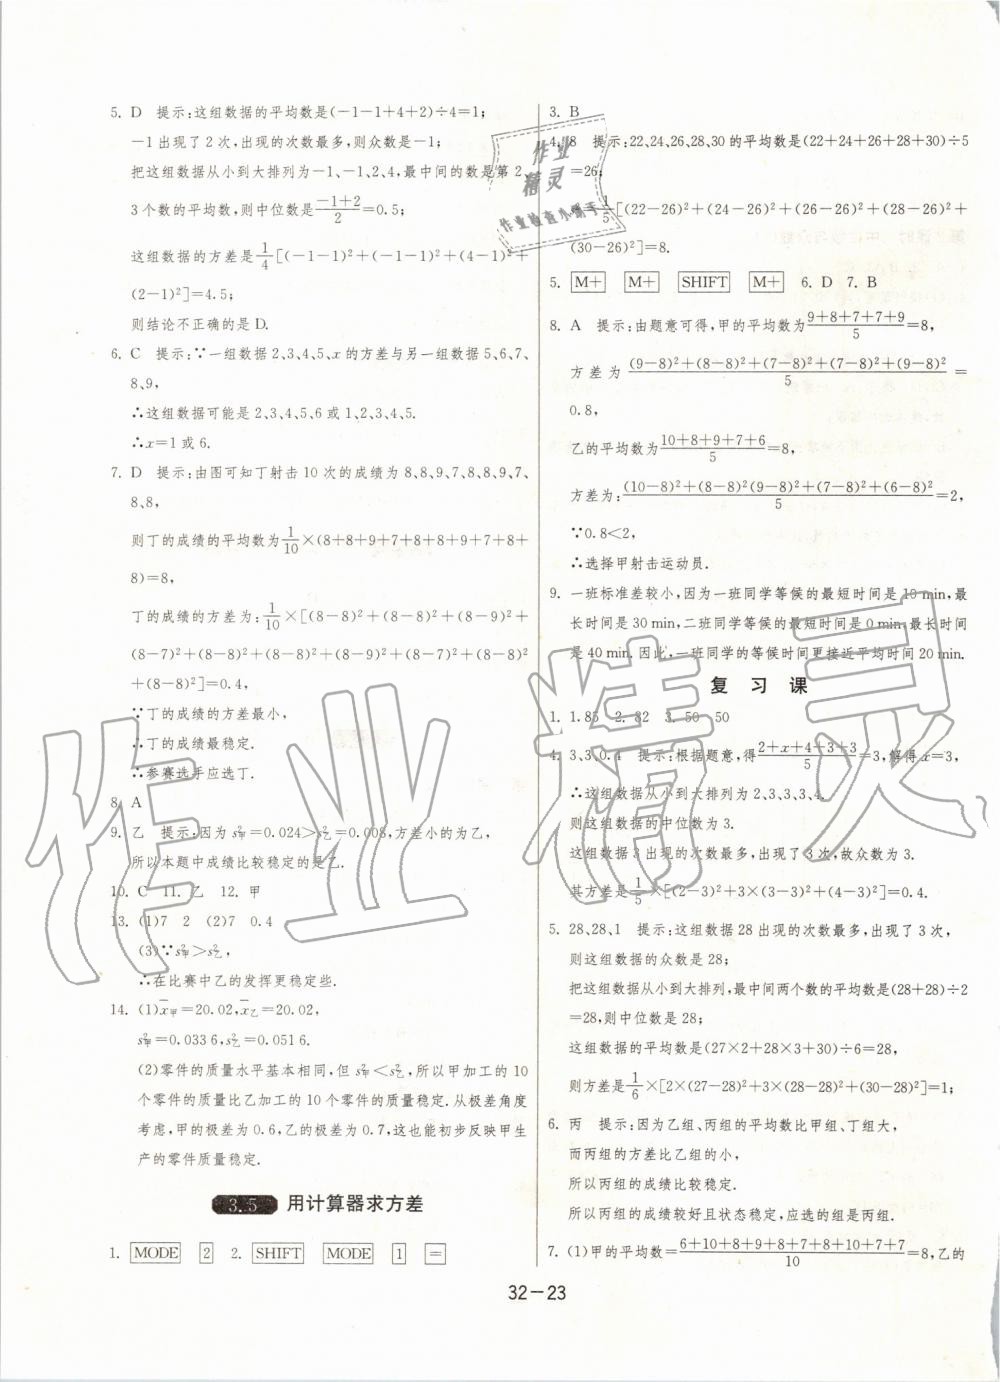 5. D 提示:这组数据的平均数是(-1-1+4+2)÷4=1;
-1出现了2次,出现的次数最多,则众数是-1;
把这组数据从小到大排列为-1、-1、2、4,最中间的数是第2、
3个数的平均数,则中位数是\frac{-1+2}{2}=0.5;
这组数据的方差是\frac{1}{4}[(-1-1)²+(-1-1)²+(4-1)²+
(2-1)²]=4.5;
则结论不正确的是D.
6. C 提示:∵一组数据2、3、4、5、x的方差与另一组数据5、6、7、
8、9,
∴这组数据可能是2、3、4、5、6或1、2、3、4、5.
∴x=1或6.
7. D 提示:由图可知丁射击10次的成绩为8、8、9、7、8、8、9、7、
8、8,
则丁的成绩的平均数为\frac{1}{10}×(8+8+9+7+8+8+9+7+8+
8)=8,
丁的成绩的方差为:\frac{1}{10}×[(8-8)²+(8-8)²+(8-9)²+
(8-7)²+(8-8)²+(8-8)²+(8-9)²+(8-7)²+(8-8)²
+(8-8)²]=0.4,
∵丁的成绩的方差最小,
∴丁的成绩最稳定.
∴参赛选手应选丁.
8. A
9. 乙 提示:因为s²甲=0.024>s²乙=0.008,方差小的为乙,
所以本题中成绩比较稳定的是乙.
10. C 11. 乙 12. 甲
13. (1)7 2 (2)7 0.4
(3)∵s²甲>s²乙,
∴在比赛中乙的发挥更稳定些.
14. (1)x̄甲=20.02,x̄乙=20.02,
s²甲=0.033 6,s²乙=0.051 6.
(2)零件的质量水平基本相同,但s²甲<s²乙,所以甲加工的10
个零件的质量比乙加工的10个零件的质量稳定.从极差角度
考虑,甲的极差为0.6,乙的极差为0.7,这也能初步反映甲生
产的零件质量稳定.
3.5 用计算器求方差
1. MODE 2 2. SHIFT MODE 1 =
3. B
4. 8 提示:22,24,26,28,30的平均数是(22+24+26+28+30)÷5
=26;
\frac{1}{5}[(22-26)²+(24-26)²+(26-26)²+(28-26)²+
(30-26)²]=8.
5. M+ M+ SHIFT M+ 6. D 7. B
8. A 提示:由题意可得,甲的平均数为\frac{9+8+7+7+9}{5}=8,
方差为\frac{(9-8)²+(8-8)²+(7-8)²+(7-8)²+(9-8)²}{5}=
0.8,
乙的平均数为\frac{10+8+9+7+6}{5}=8,
方差为:\frac{(10-8)²+(8-8)²(9-8)²+(7-8)²+(6-8)²}{5}=2,
∵0.8<2,
∴选择甲射击运动员.
9. 一班标准差较小,因为一班同学等候的最短时间是10 min,最
长时间是30 min,二班同学等候的最短时间是0 min,最长时间
是40 min.因此,一班同学的等候时间更接近平均时间20 min.
复习课
1. 1.85 2. 82 3. 50 50
4. 3,3,0.4 提示:根据题意,得\frac{2+x+4+3+3}{5}=3,解得x=3,
这组数据从小到大排列为2、3、3、3、4.
则这组数据的中位数为3.
这组数据3出现的次数最多,出现了3次,故众数为3.
其方差是\frac{1}{5}×[(2-3)²+3×(3-3)²+(4-3)²]=0.4.
5. 28,28,1 提示:这组数据28出现的次数最多,出现了3次,
则这组数据的众数是28;
把这组数据从小到大排列,最中间两个数的平均数是(28+28)÷2
=28,则中位数是28;
这组数据的平均数是(27×2+28×3+30)÷6=28,
则方差是\frac{1}{6}×[2×(27-28)²+3×(28-28)²+(30-28)²]=1;
6. 丙 提示:因为乙组、丙组的平均数比甲组、丁组大,
而丙组的方差比乙组的小,
所以丙组的成绩比较稳定,
所以丙组的成绩较好且状态稳定,应选的组是丙组.
7. (1)甲的平均数=\frac{6+10+8+9+8+7+8+10+7+7}{10}=8,乙的
32-23
作业精灵
作业检查小帮手
作业精灵